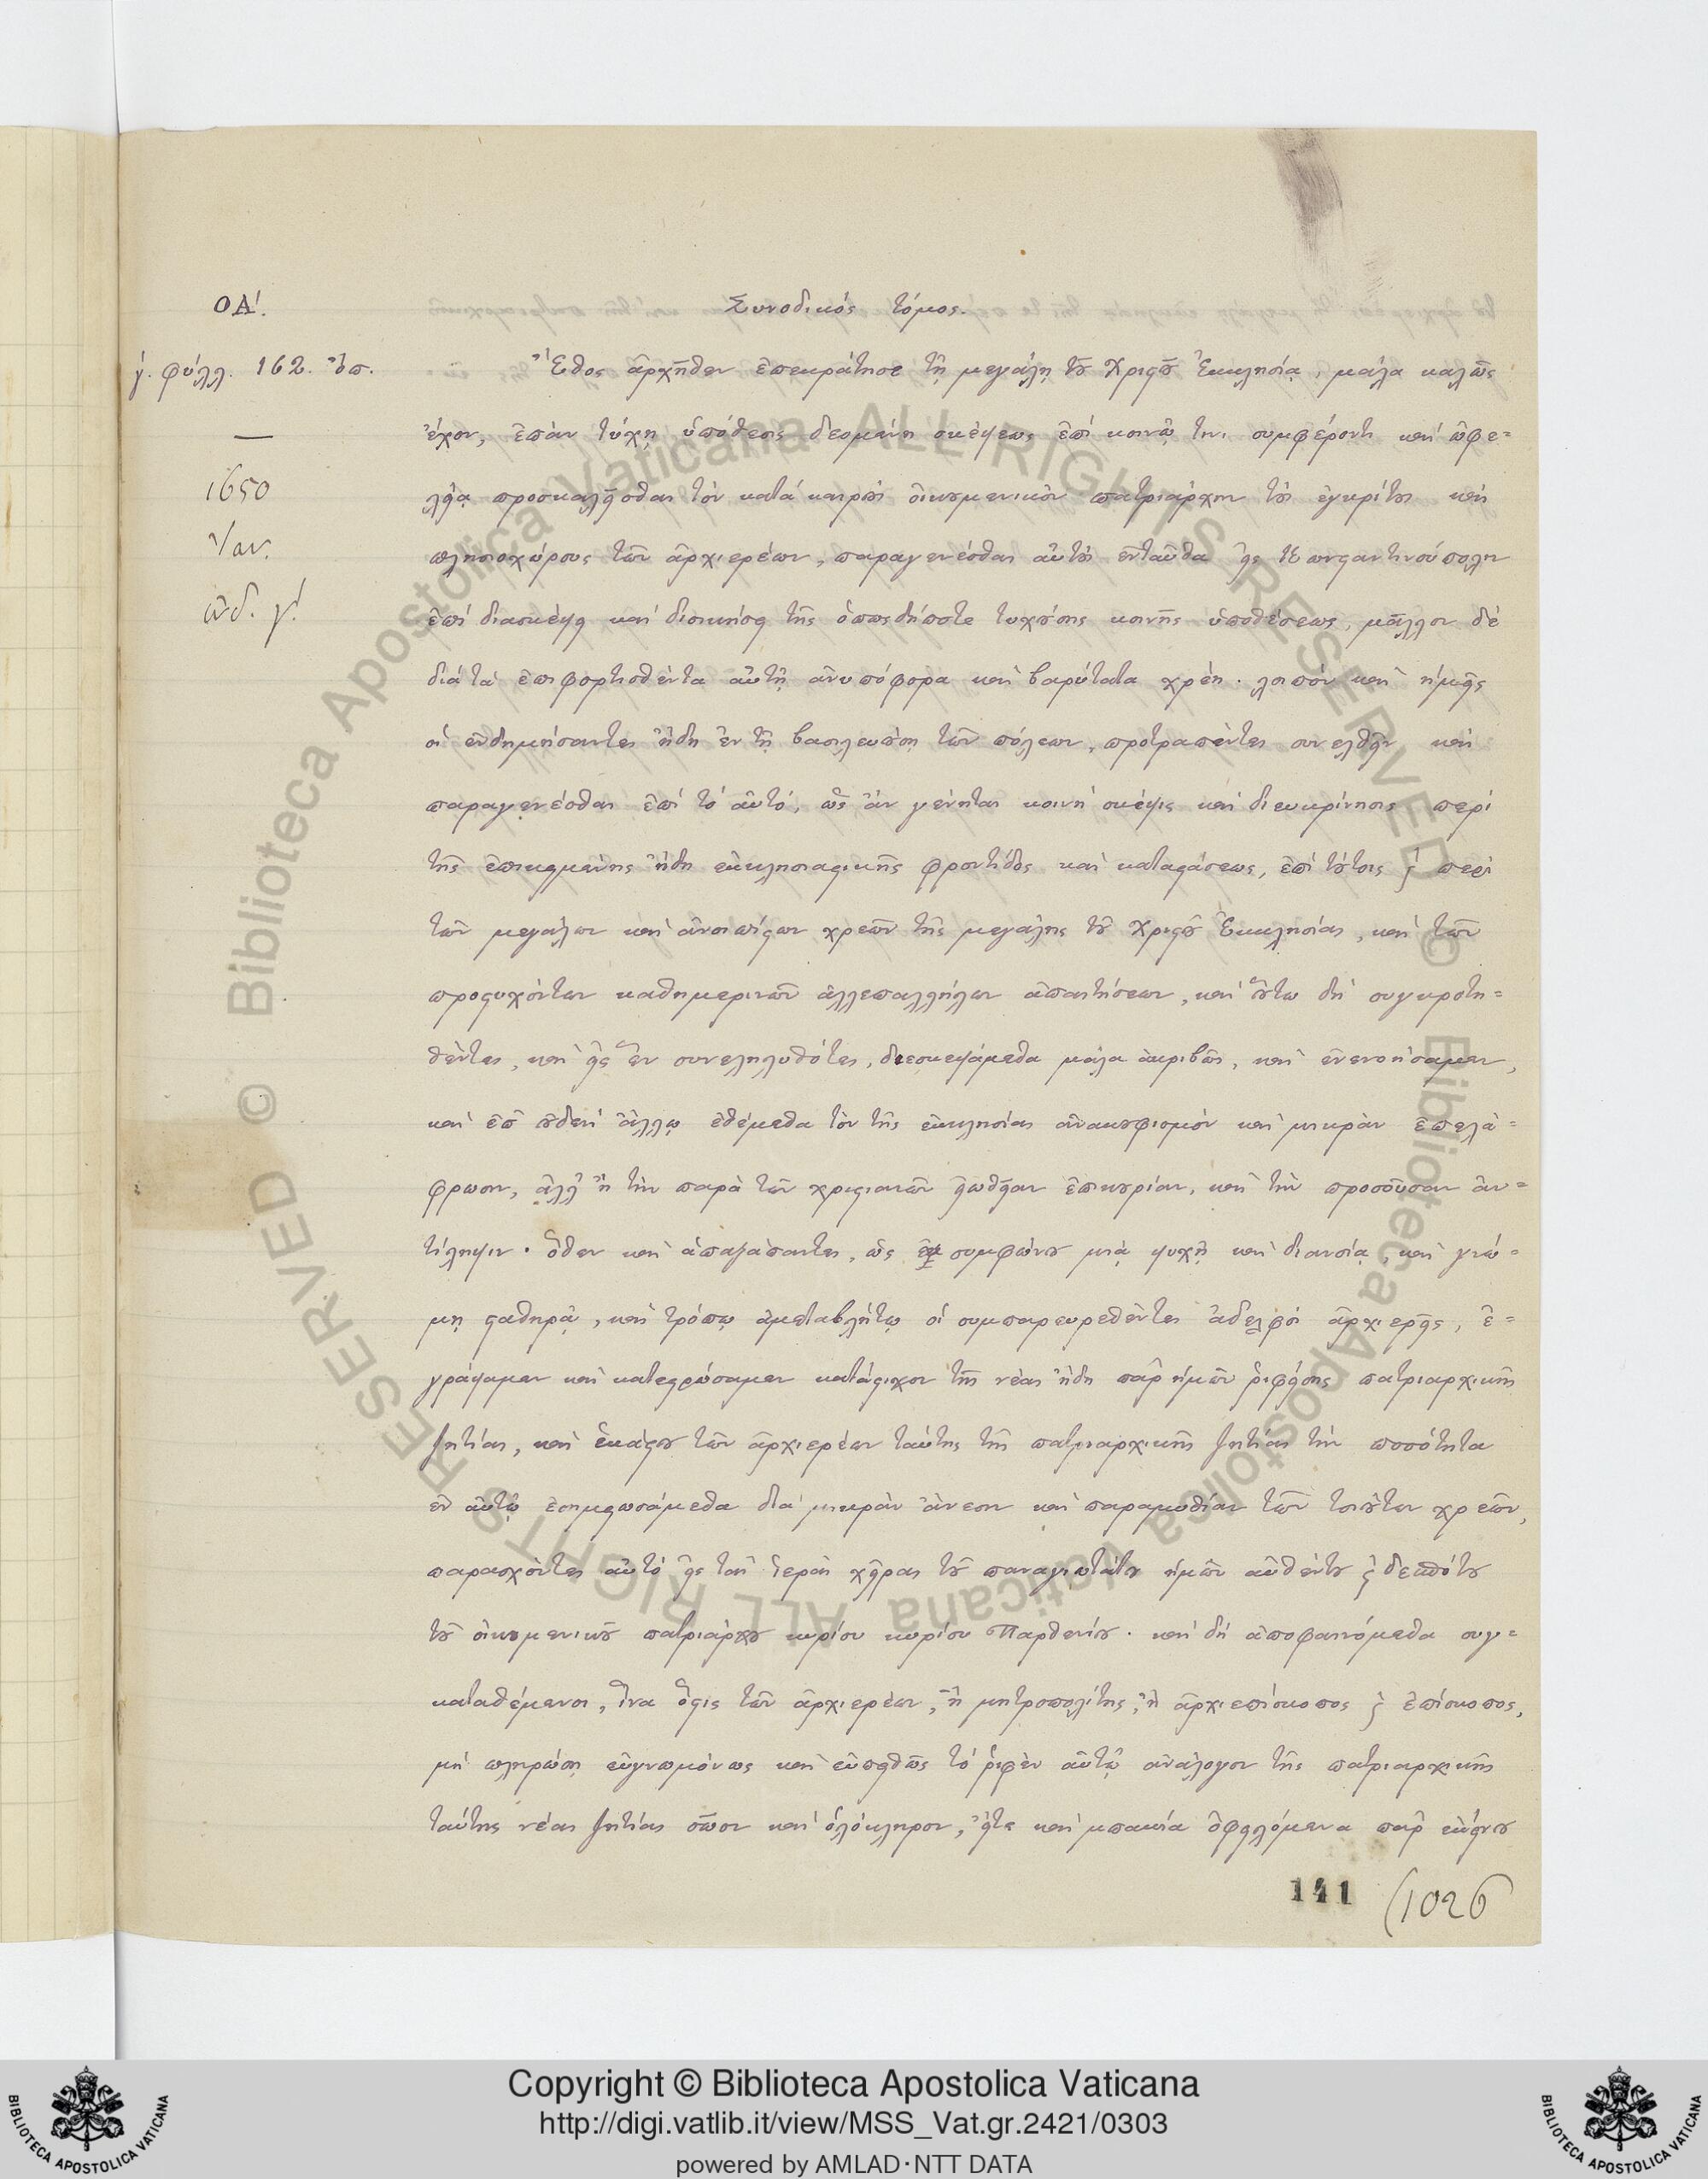 ΟΑ΄.
Συνοδικός τόμος.
γ΄. φύλλ. 162. ὄπ.
Ἔθος ἀρχῆθεν ἐπεκράτησε τῇ μεγάλῃ τοῦ Χριστοῦ Ἐκκλησίᾳ, μάλα καλῶς
ἔχον, ἐπὰν τύχῃ ὑπόθεσις δεομένη σκέψεως ἐπὶ κοινῷ τινι συμφέροντι καὶ ὠφε-
λείᾳ προσκαλεῖσθαι τὸν κατὰ καιροὺς οἰκουμενικὸν πατριάρχην τοὺς ἐγκρίτους καὶ
πλησιοχώρους τῶν ἀρχιερέων, παραγενέσθαι αὐτοὺς ἐνταῦθα εἰς Κωνσταντινούπολιν
ἐπὶ διασκέψει καὶ διοικήσει τῆς ὁπωσδήποτε τυχούσης κοινῆς ὑποθέσεως, μᾶλλον δὲ
διὰ τὰ ἐπιφορτισθέντα αὐτῇ ἀνυπόφορα καὶ βαρύτατα χρέη. λοιπὸν καὶ ἡμεῖς
οἱ ἐνδημήσαντες ἤδη ἐν τῇ βασιλευούσῃ τῶν πόλεων, προτραπέντες συνελθεῖν καὶ
παραγενέσθαι ἐπὶ τὸ αὐτό, ὡς ἂν γένηται κοινὴ σκέψις καὶ διευκρίνησις περὶ
τῆς ἐπικειμένης ἤδη ἐκκλησιαστικῆς φροντίδος καὶ καταστάσεως, ἐπὶ τούτοις καὶ περὶ
τῶν μεγάλων καὶ ἀνοιπίστων χρεῶν τῆς μεγάλης τοῦ Χριστοῦ Ἐκκλησίας, καὶ τῶν
προστυχόντων καθημερινῶν ἀλλεπαλλήλων ἀπαιτήσεων, καὶ οὕτω δὴ συγκροτη-
θέντες, καὶ εἰς ἓν συνεληλυθότες, διεσκεψάμεθα μάλα ἀκριβῶς, καὶ ἐνενοήσαμεν,
καὶ ἐπ᾽ οὐδενὶ ἄλλῳ ἐθέμεθα τὸν τῆς ἐκκλησίας ἀνακουφισμὸν καὶ μικρὰν ἐπελά-
φρωσιν, ἀλλ᾽ ἢ τὴν παρὰ τῶν χριστιανῶν εἰωθεῖαν ἐπικουρίαν, καὶ τὴν προσοῦσαν ἀν-
τίληψιν. ὅθεν καὶ ἀπαξάπαντες, ὡς συμφώνου μιᾷ ψυχῇ καὶ διανοίᾳ, καὶ γνώ-
μῃ σταθηρᾷ, καὶ τρόπῳ ἀμεταβλήτῳ οἱ συμπαρευρεθέντες ἀδελφοὶ ἀρχιερεῖς, ἐ-
γράψαμεν καὶ κατεστρώσαμεν κατάστιχον τῆς νέας ἤδη παρ᾽ ἡμῶν ῥιφείσης πατριαρχικῆς
ζητίας, καὶ ἑκάστου τῶν ἀρχιερέων ταύτης τῆς πατριαρχικῆς ζητίας τὴν ποσότητα
ἐν αὐτῷ ἐσημειωσάμεθα διὰ μικρὰν ἄνεσιν καὶ παραμυθίαν τῶν τοιούτων χρεῶν,
παρασχόντες αὐτὸ εἰς τὰς ἱερὰς χεῖρας τοῦ παναγιωτάτου ἡμῶν αὐθέντου καὶ δεσπότου
τοῦ οἰκουμενικοῦ πατριάρχου κυρίου κυρίου Παρθενίου. καὶ δὴ ἀποφαινόμεθα συγ-
καταθέμενοι, ἵνα ὅστις τῶν ἀρχιερέων, ἢ μητροπολίτης, ἢ ἀρχιεπίσκοπος καὶ ἐπίσκοπος,
μὴ πληρώσῃ εὐγνωμόνως καὶ εὐπειθῶς τὸ ῥιφὲν αὐτῷ ἀνάλογον τῆς πατριαρχικῆς
ταύτης νέας ζητίας σῶον καὶ ὁλόκληρον, εἴτε καὶ μπακία ὀφειλόμενα παρ᾽ ἐκείνου
1650
Ἰαν.
ἰνδ. γ΄.
141
(1026
Copyright © Biblioteca Apostolica Vaticana
http://digi.vatlib.it/view/MSS_Vat.gr.2421/0303
powered by AMLAD·NTT DATA